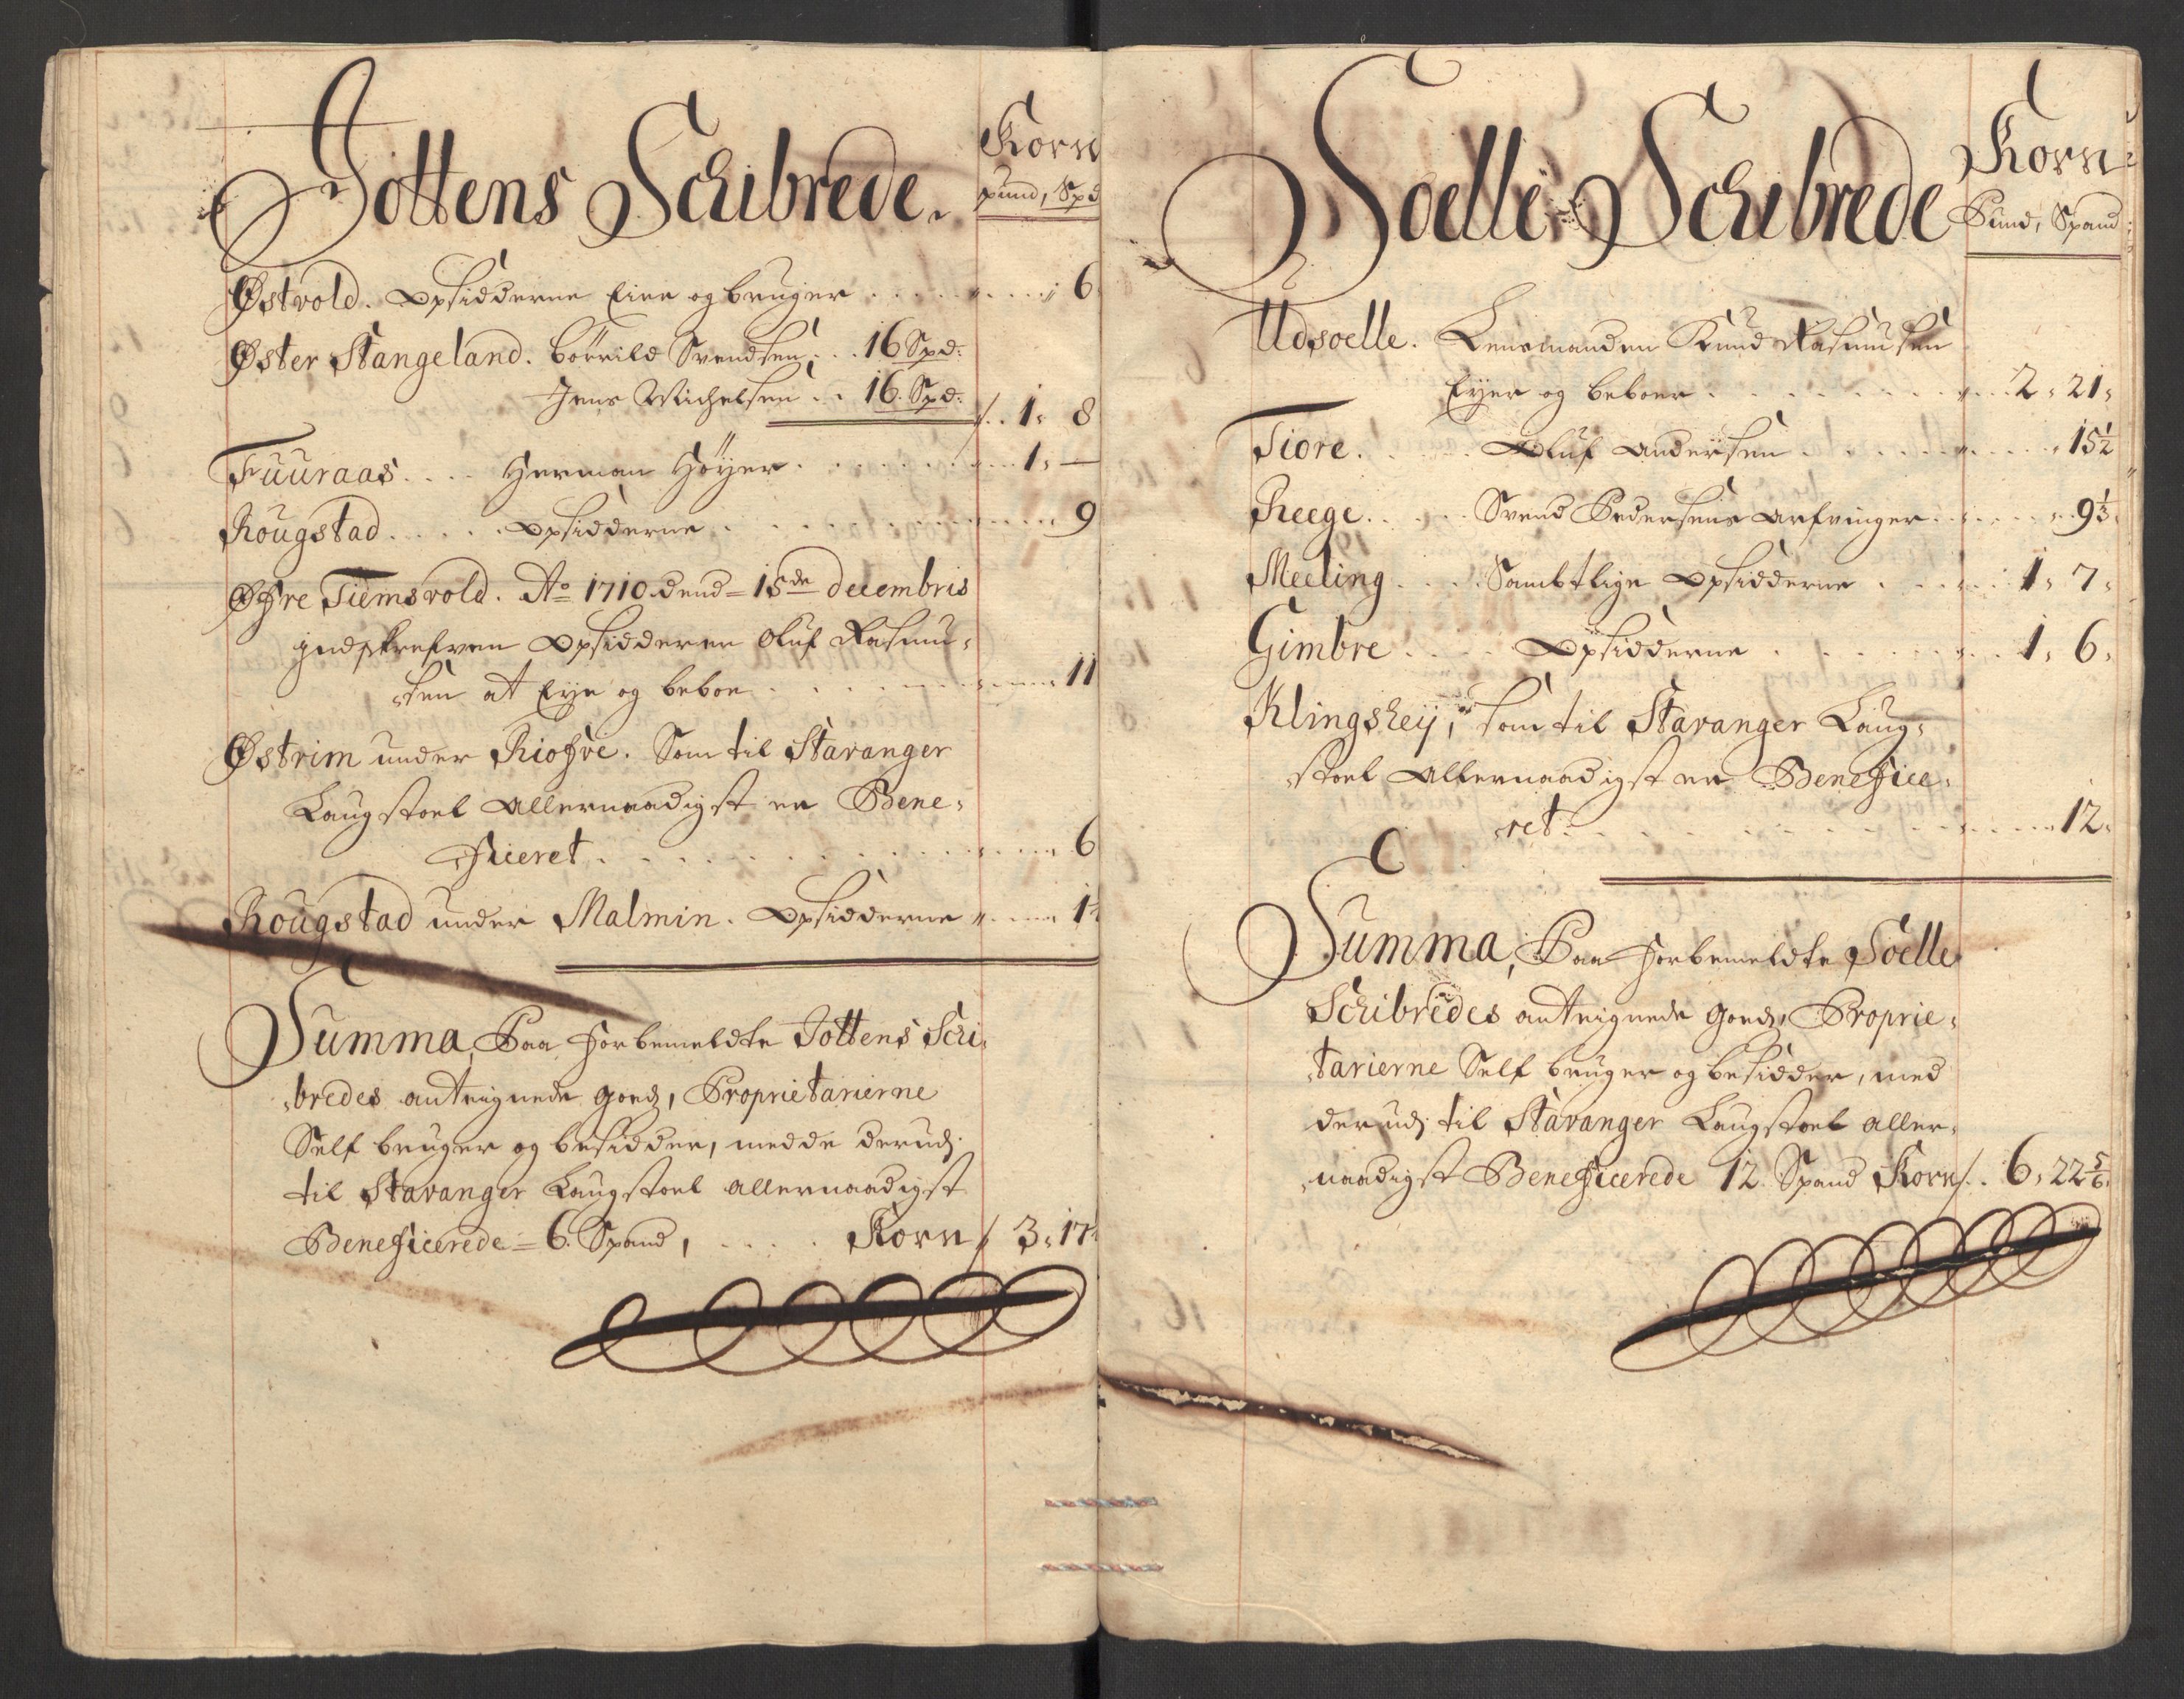 Jottens Schibrede.
Korn
pund, Spd
Østvold. Opsidderne Eier og bruger . . . . 6
Øster Stangeland. Børrild Svendsen . . 16 Spd:
Jens Michelsen . . 16. Spd: /. . 1, 8
Fuuraas. . . . Herman Høyer. . . . . . . 1, —
Rougstad. . . . . Opsidderne . . . . . . . 9
Øfre Tiemsvold. Ao 1710. dend = 15de decembris
indskrefven Opsidderen Oluf Rasmu-
sen at Eye og beboe . . . . . . 11
Østrim under Riofre. Som til Stavanger
Laugstoel Allernaadigst er Bene-
ficeret . . . . . . . . . . . 6
Rougstad under Malmin. Opsidderne . . . 1½
Summa, Paa Forbemeldte Jottens Schi-
bredes antegnede goeds, Proprietarierne
Self bruger og besidder, medde derudj
til Stavanger Laugstoel allernaadigst
Beneficerede = 6. Spand, . . . . Korn /. 3, 17½
Soelle Schibrede
Korn
Pund, Spand
Udsoelle. Lensmanden Knud Rasmusen
Eyer og beboer . . . . . . . . . 2, 21,
Tiore. . . . . . Oluf Andersen . . . . . . . 15½
Reege. . . . . Svend Pedersens Arfvinger. . . . . 9⅓
Meeling . . . . Sambtlige Opsidderne . . . . 1, 7,
Gimbre . . . . . Opsidderne . . . . . . . . 1, 6,
Klingsheij, som til Stavanger Laug-
stoel Allernaadigst er Benefice-
ret . . . . . . . . . . . . 12,
Summa, Paa Forbemeldte Soelle
Schibredes antegnede goeds, Proprie-
tarierne Self bruger og besidder, med
derudj til Stavanger Laugstoel aller-
naadigst Beneficerede 12. Spand Korn /. . 6, 22⅚,